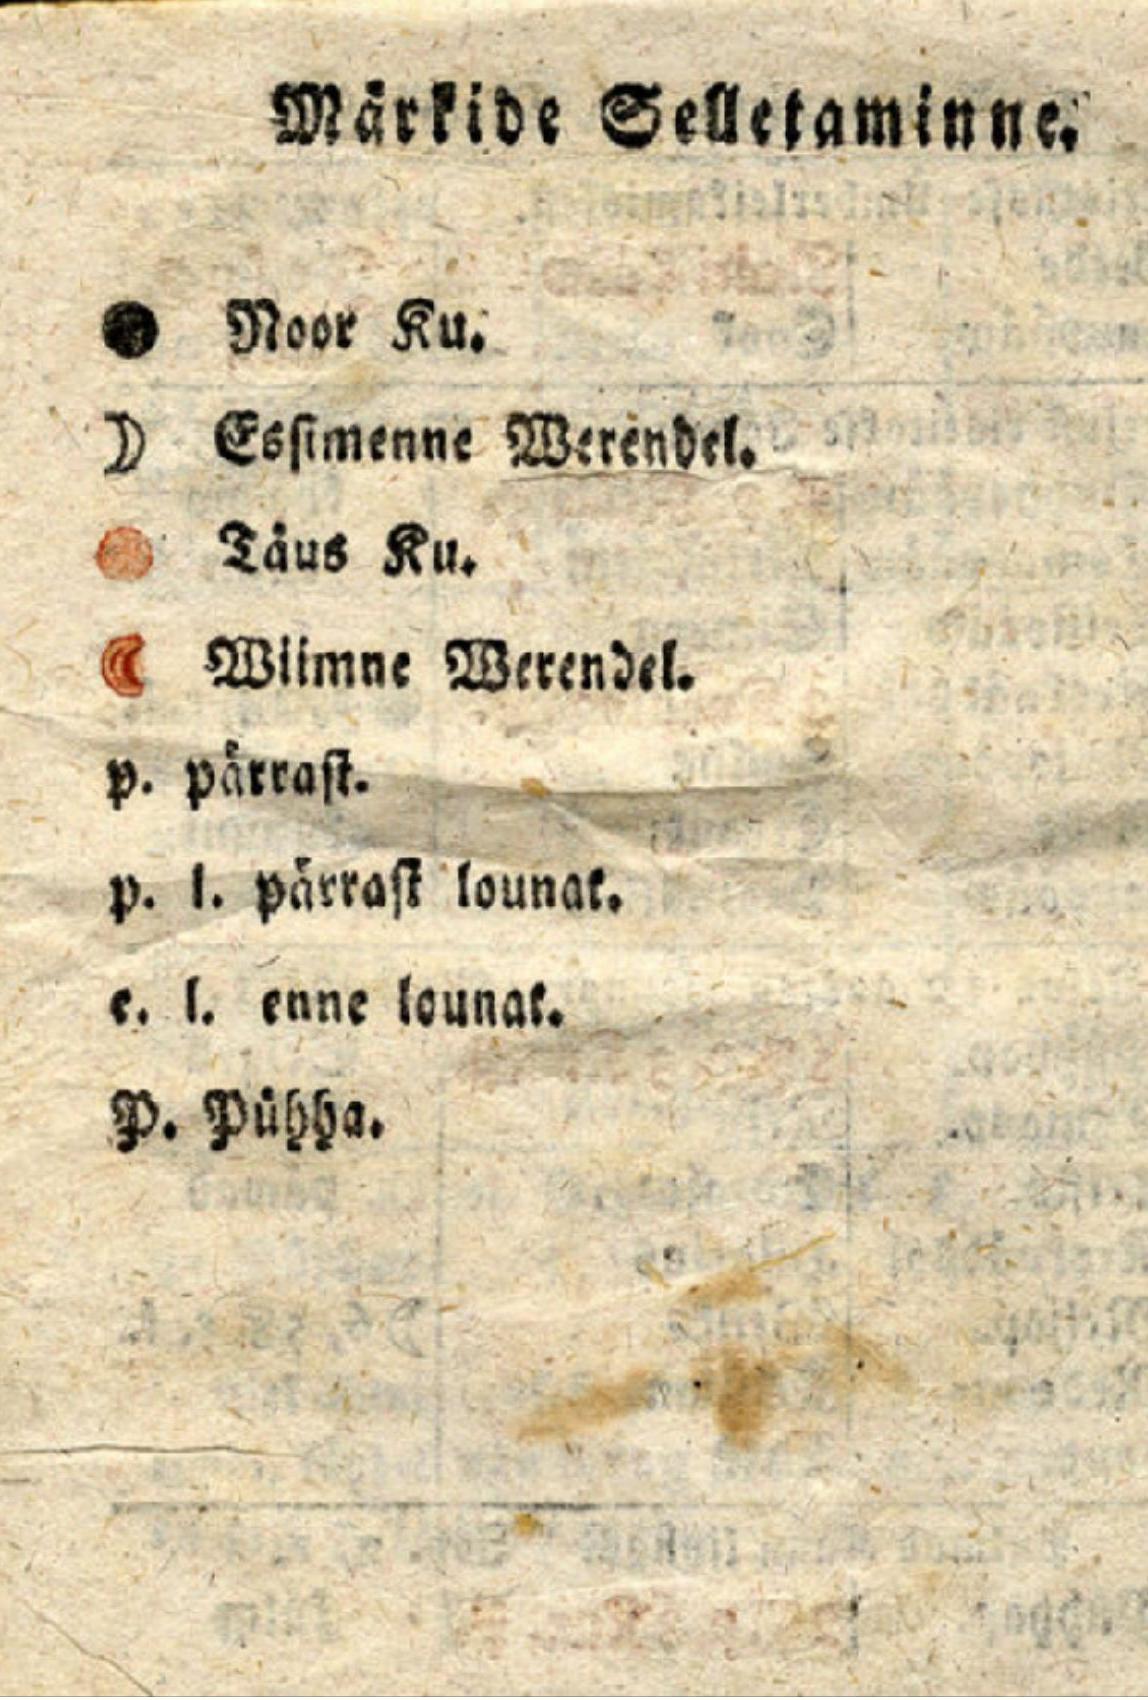 Märkide Selletaminne.
Noor Ku.
Essimenne Werendel.
Täus Ku.
Wiimne Werendel.
p. pärrast.
p. l. pärrast lounat.
e. l. enne lounat.
P. Pühha.